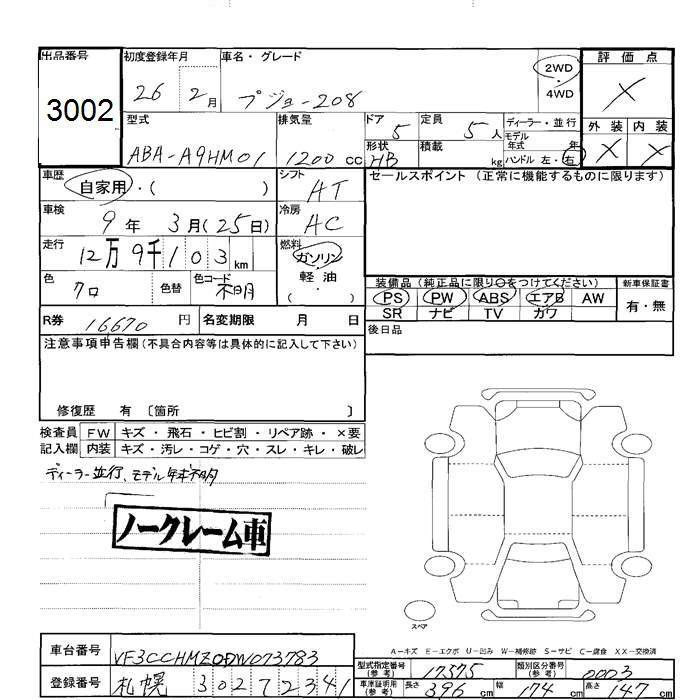 出品番号
3002
初度登録年月
26 2月
車名・グレード
プジョー208
2WD
4WD
評価点
X
型式
ABA-A9HM01
排気量
1200cc
ドア
5
定員
5人
形状
HB
積載
kg
ディーラー・並行
モデル年式 年
ハンドル 左・右
外装 内装
X X
車歴
自家用・( )
シフト
AT
セールスポイント (正常に機能するものに限ります)
車検
9年 3月(25日)
冷房
AC
走行
12万9千103km
燃料
ガソリン
軽油
( )
色
クロ
色替
色コード
不明
装備品 (純正品に限り○をつけてください)
PS PW ABS エアB AW
SR ナビ TV カワ
新車保証書
有・無
R券 16670円
名変期限 月 日
後日品
注意事項申告欄(不具合内容等は具体的に記入して下さい)
修復歴 有 〔箇所 〕
検査員 FW キズ・飛石・ヒビ割・リペア跡・×要
記入欄 内装 キズ・汚レ・コゲ・穴・スレ・キレ・破レ
ディーラー並行、モデル年式不明
ノークレーム車
スペア
A-キズ E-エクボ U-凹み W-補修跡 S-サビ C-腐食 XX-交換済
車台番号 VF3CCHMZ0DW073783
登録番号 札幌 302 た 2341
型式指定番号(参考) 17575
類別区分番号(参考) 0003
車庫証明用(参考) 長さ 396cm 幅 174cm 高さ 147cm